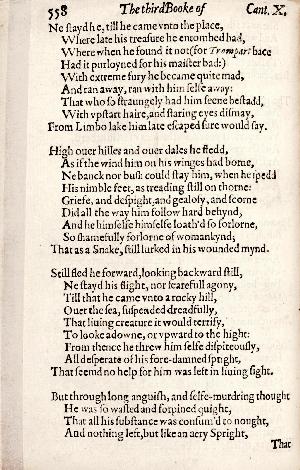 558 The third Booke of Cant. X.
Ne stayd he, till he came vnto the place,
Where late his treasure he entombed had,
Where when he found it not (for Trompart bace
Had it purloyned for his maister bad:)
With extreme fury he became quite mad,
And ran away, ran with him selfe away:
That who so straungely had him seene bestadd,
With vpstart haire, and staring eyes dismay,
From Limbo lake him late escaped sure would say.
High ouer hilles and ouer dales he fledd,
As if the wind him on his winges had borne,
Ne banck nor bush could stay him, when he spedd
His nimble feet, as treading still on thorne:
Griefe, and despight, and gealosy, and scorne
Did all the way him follow hard behynd,
And he himselfe himselfe loath'd so forlorne,
So shamefully forlorne of womankynd;
That as a Snake, still lurked in his wounded mynd.
Still fled he forward, looking backward still,
Ne stayd his flight, nor fearefull agony,
Till that he came vnto a rocky hill,
Ouer the sea, suspended dreadfully,
That liuing creature it would terrify,
To looke adowne, or vpward to the hight:
From thence he threw him selfe dispiteously,
All desperate of his fore-damned spright,
That seemd no help for him was left in liuing sight.
But through long anguish, and selfe-murdring thought
He was so wasted and forpined quight,
That all his substance was consum'd to nought,
And nothing left, but like an aery Spright,
That